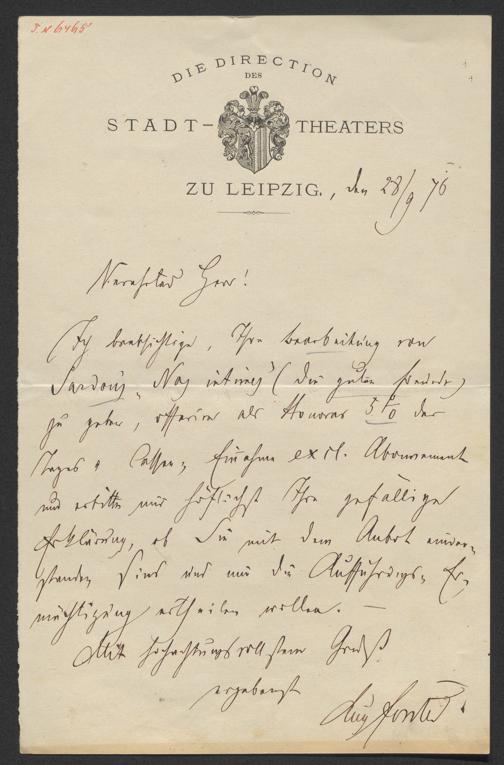 J.N 6465
DIE DIRECTION
DES
STADT- THEATERS
ZU LEIPZIG., den 28/9 76
Verehrter Herr!
Ich beabsichtige, Ihre Bearbeitung von
Sardou's „Nos intimes" (die guten Freunde)
zu geben, offerire als Honorar 5 % der
Tages- Cassen- Einahme excl. Abonnement
und erbitte mir höflichst Ihre gefällige
Erklärung, ob Sie mit dem Anbot einver-
standen sind und mir die Aufführungs- Er-
mächtigung ertheilen wollen. —
Mit hochachtungsvollstem Gruß
ergebenst
Aug Förster